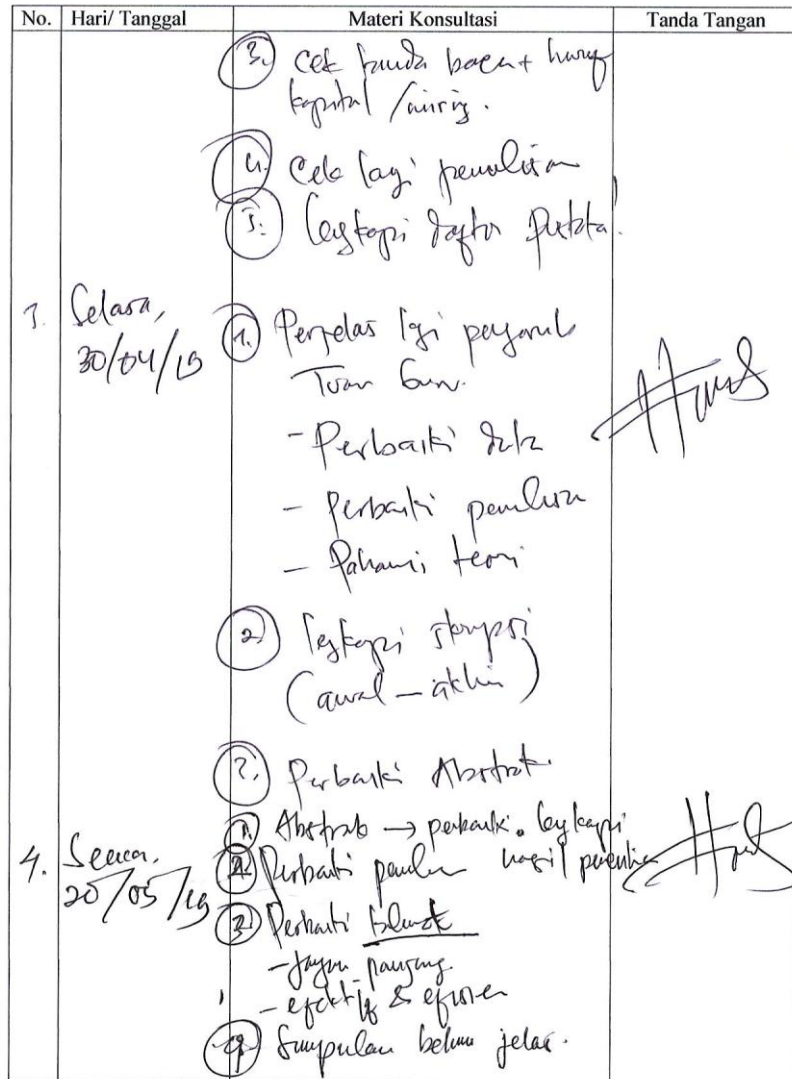 No. Hari/ Tanggal Materi Konsultasi Tanda Tangan
3. Cek tanda baca + huruf
kapital / miring.
4. Cek lagi penulisan
5. Lengkapi daftar pustaka!
3. Selasa,
30/04/19
1. Perjelas lagi pengaruh
Tuan
- Perbaiki data
- Perbaiki penulisan
- Pahami teori
2. Lengkapi skripsi
(awal – akhir)
3. Perbaiki Abstrak.
4. Senin,
20/05/19
1. Abstrak → perbaiki. lengkapi
hasil penelitian
2. Perbaiki penulisan
3. Perbaiki kalimat
- jangan panjang
- efektif & efisien
4. Simpulan belum jelas.